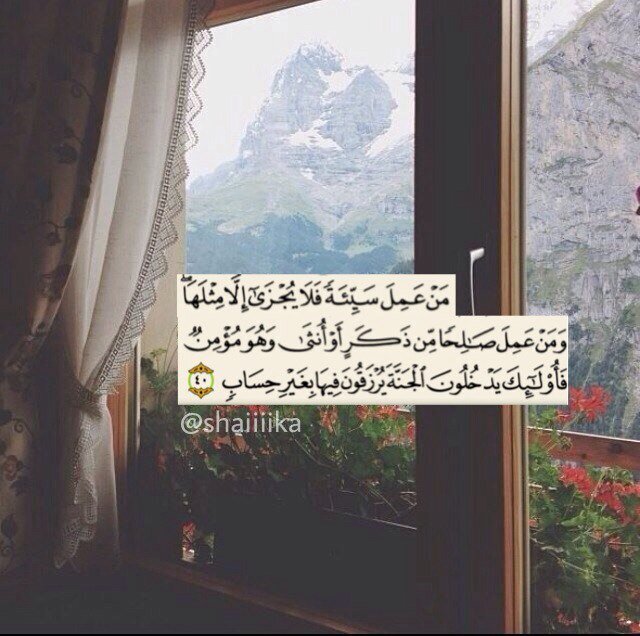 مَنْ عَمِلَ سَيِّئَةً فَلَا يُجْزَىٰٓ إِلَّا مِثْلَهَا ۖ
وَمَنْ عَمِلَ صَـٰلِحًا مِّن ذَكَرٍ أَوْ أُنثَىٰ وَهُوَ مُؤْمِنٌ
فَأُو۟لَـٰٓئِكَ يَدْخُلُونَ ٱلْجَنَّةَ يُرْزَقُونَ فِيهَا بِغَيْرِ حِسَابٍ ٤٠
@shaiiiika